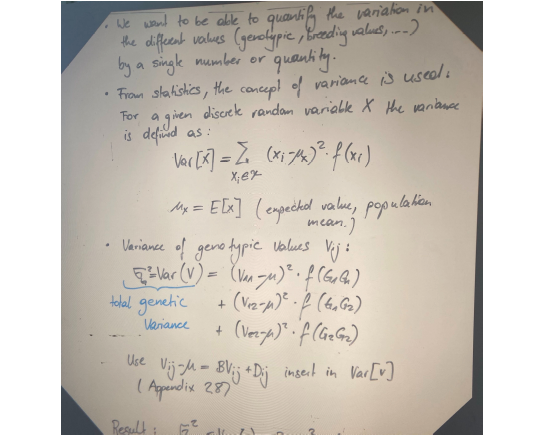 • We want to be able to quantify the variation in
the different values (genotypic, breeding values, ....)
by a single number or quantity.
• From statistics, the concept of variance is used:
For a given discrete random variable X the variance
is defined as:
Var[X] = ∑ (xi-μx)² · f(xi)
xi∈𝒳
μx = E[X] (expected value, population
mean.)
• Variance of genotypic values Vij:
= Var(V) = (V11-μ)² · f(G1G1)
total genetic + (V12-μ)² · f(G1G2)
Variance + (V22-μ)² · f(G2G2)
Use Vij-μ = BVij + Dij insert in Var[V]
(Appendix 28)
Result: